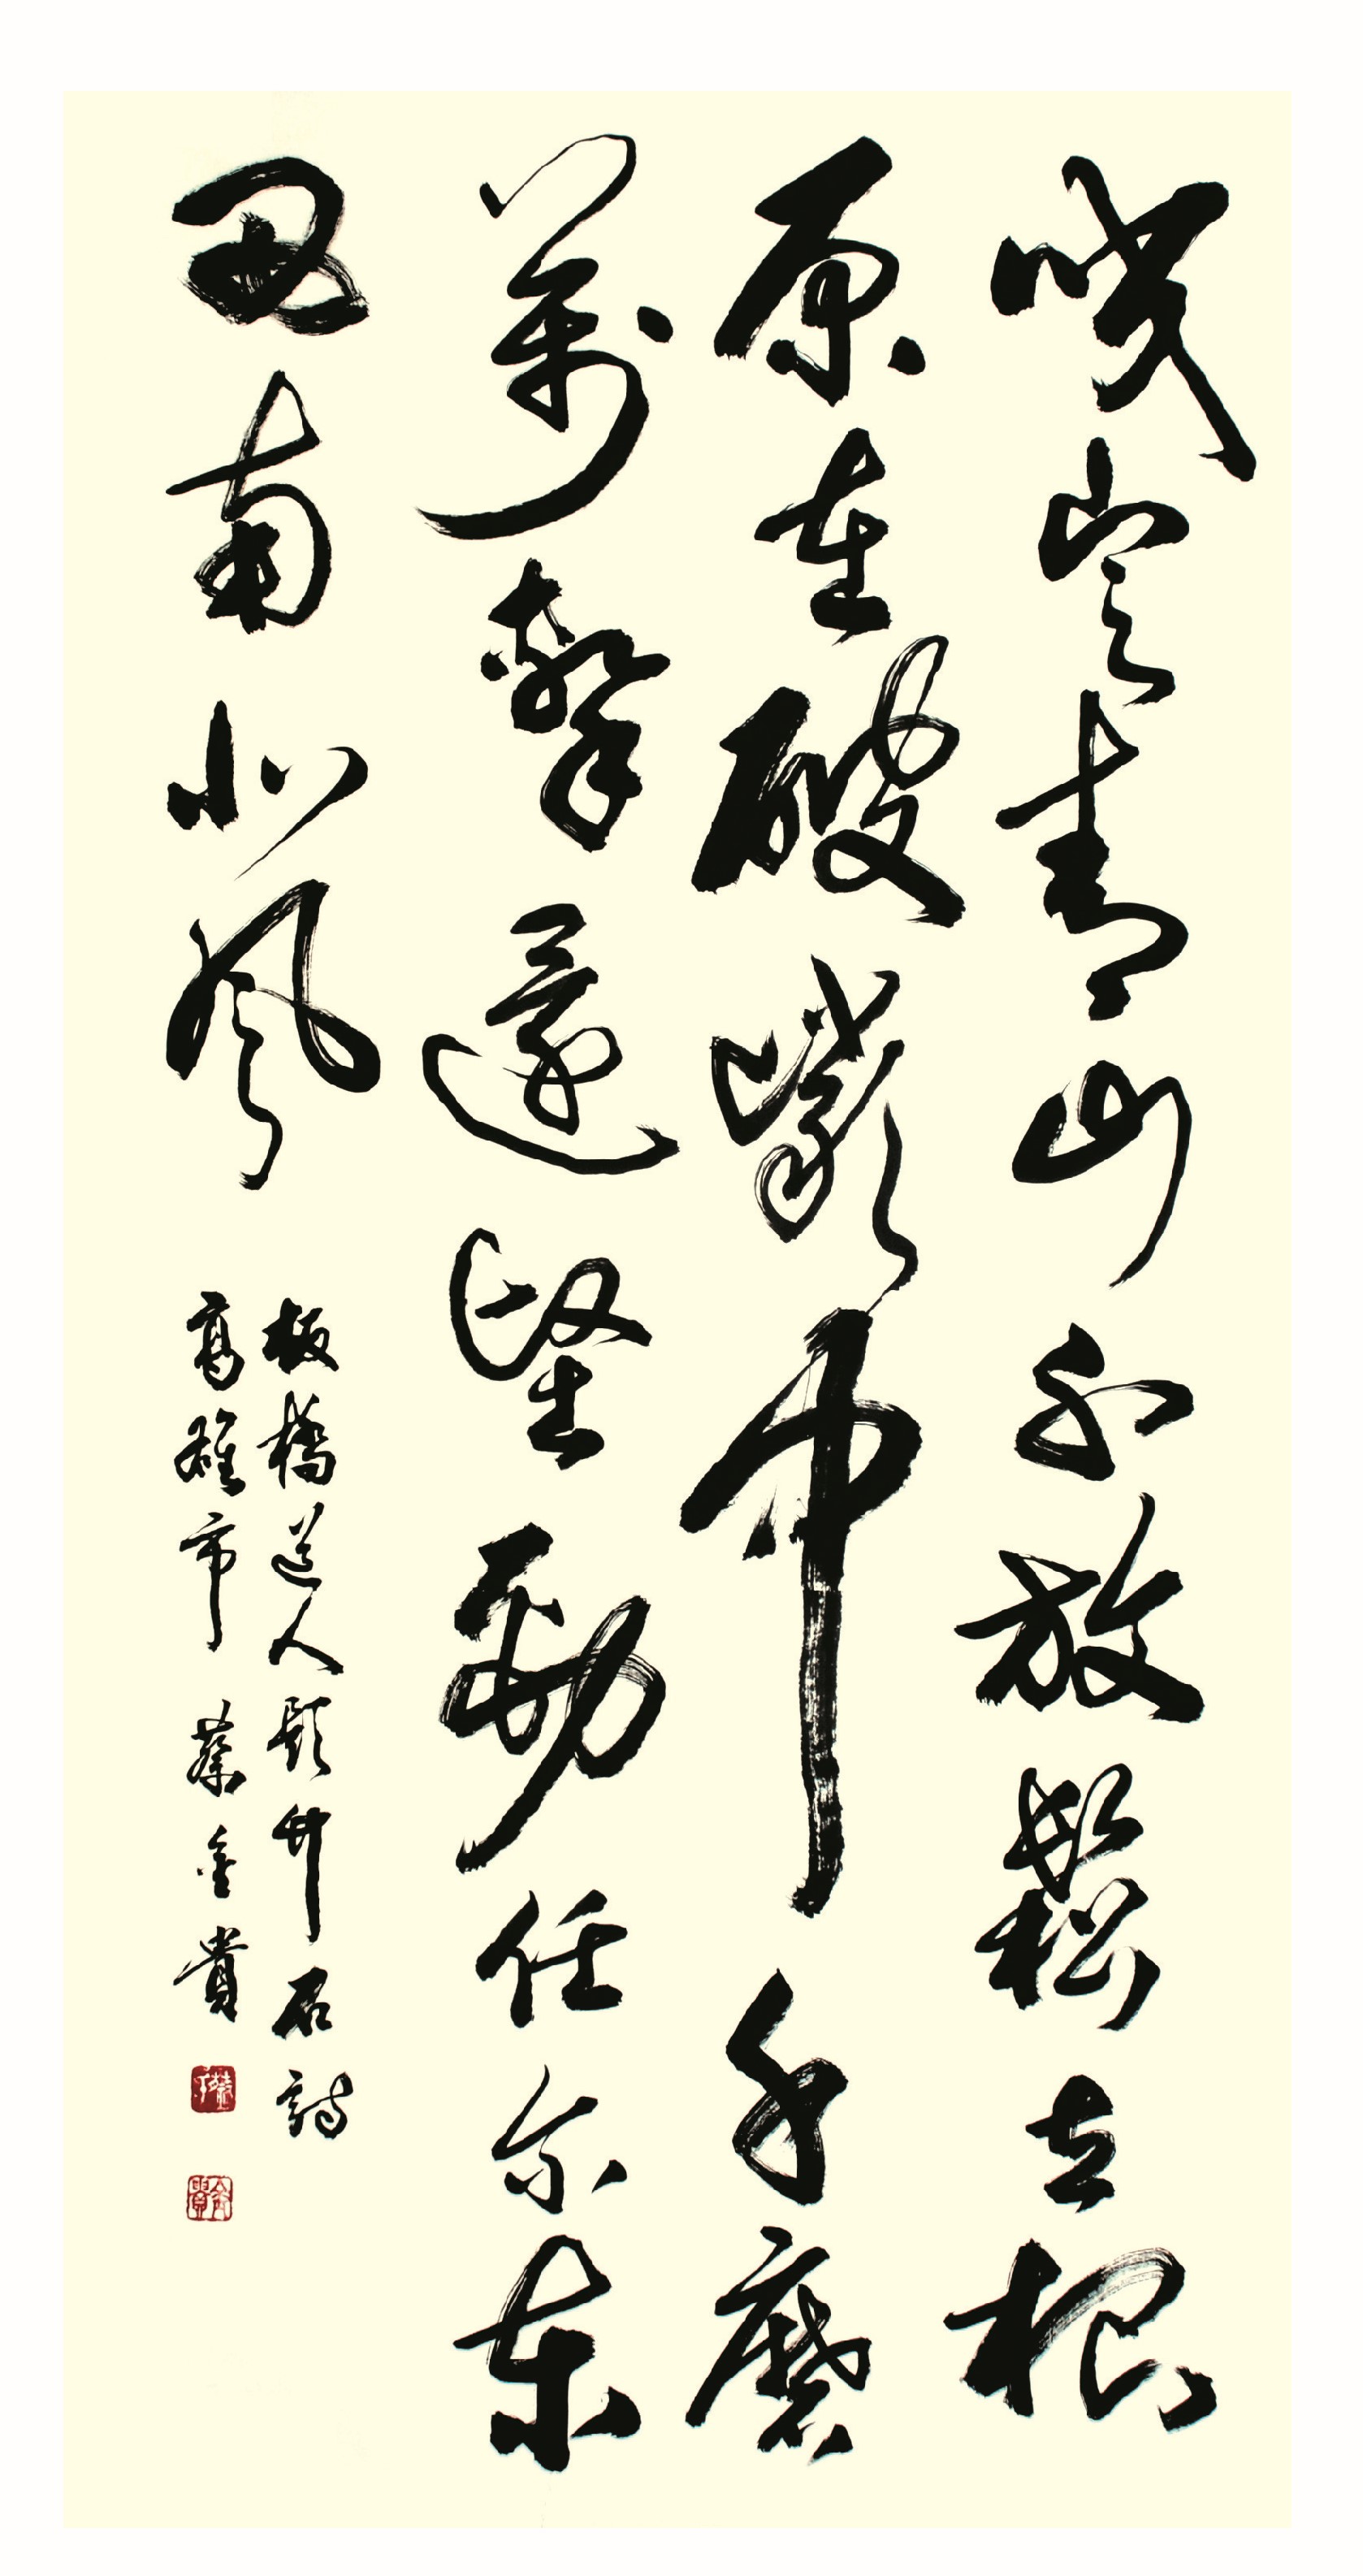 咬定青山不放鬆立根
原在破巖中千磨
萬擊還堅勁任尔東
西南北風
板橋道人題竹石詩
高雄市 蔡金貴
金貴